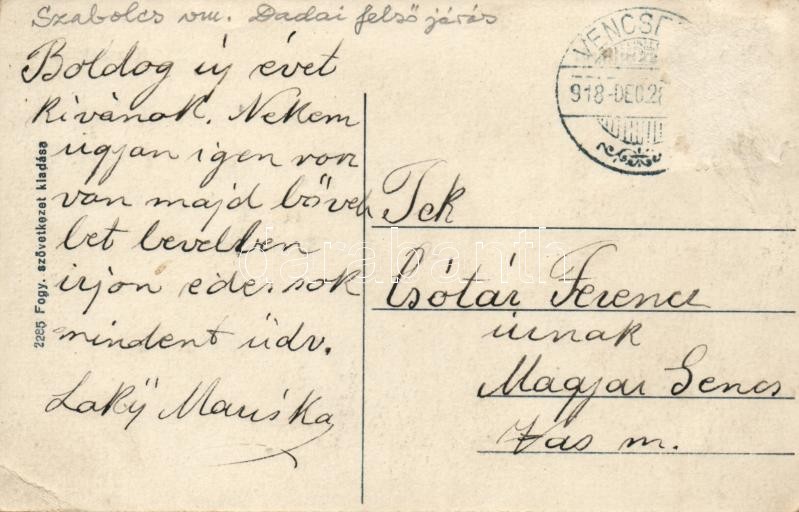 Szabolcs vm. Dadai felső járás
Boldog új évet
kivánok. Nekem
ugyan igen
van majd bőveb
bet levelben
irjon edes sok
mindent üdv.
Lakÿ Mariska
2285 Fogy. szövetkezet kiadása
VENCSE
918-DEC.28
Tek
Csótár Ferencz
úrnak
Magyar Gencs
Vas m.
darabanth